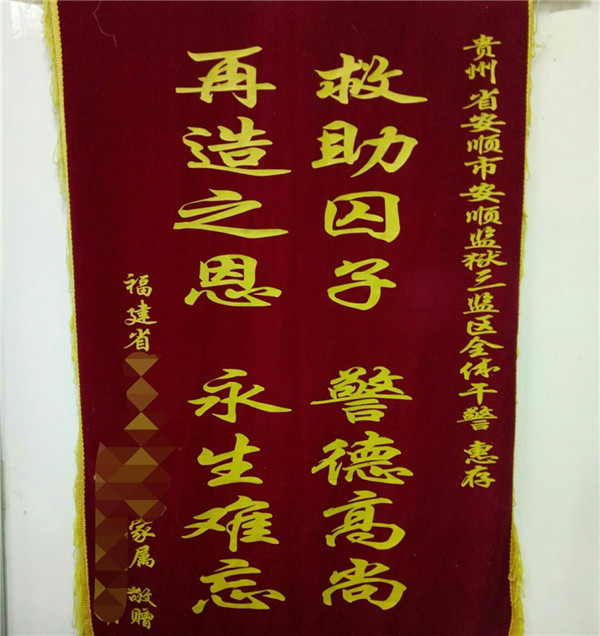 贵州省安顺市安顺监狱三监区全体干警 惠存
救助囚子 警德高尚
再造之恩 永生难忘
福建省 家属 敬赠